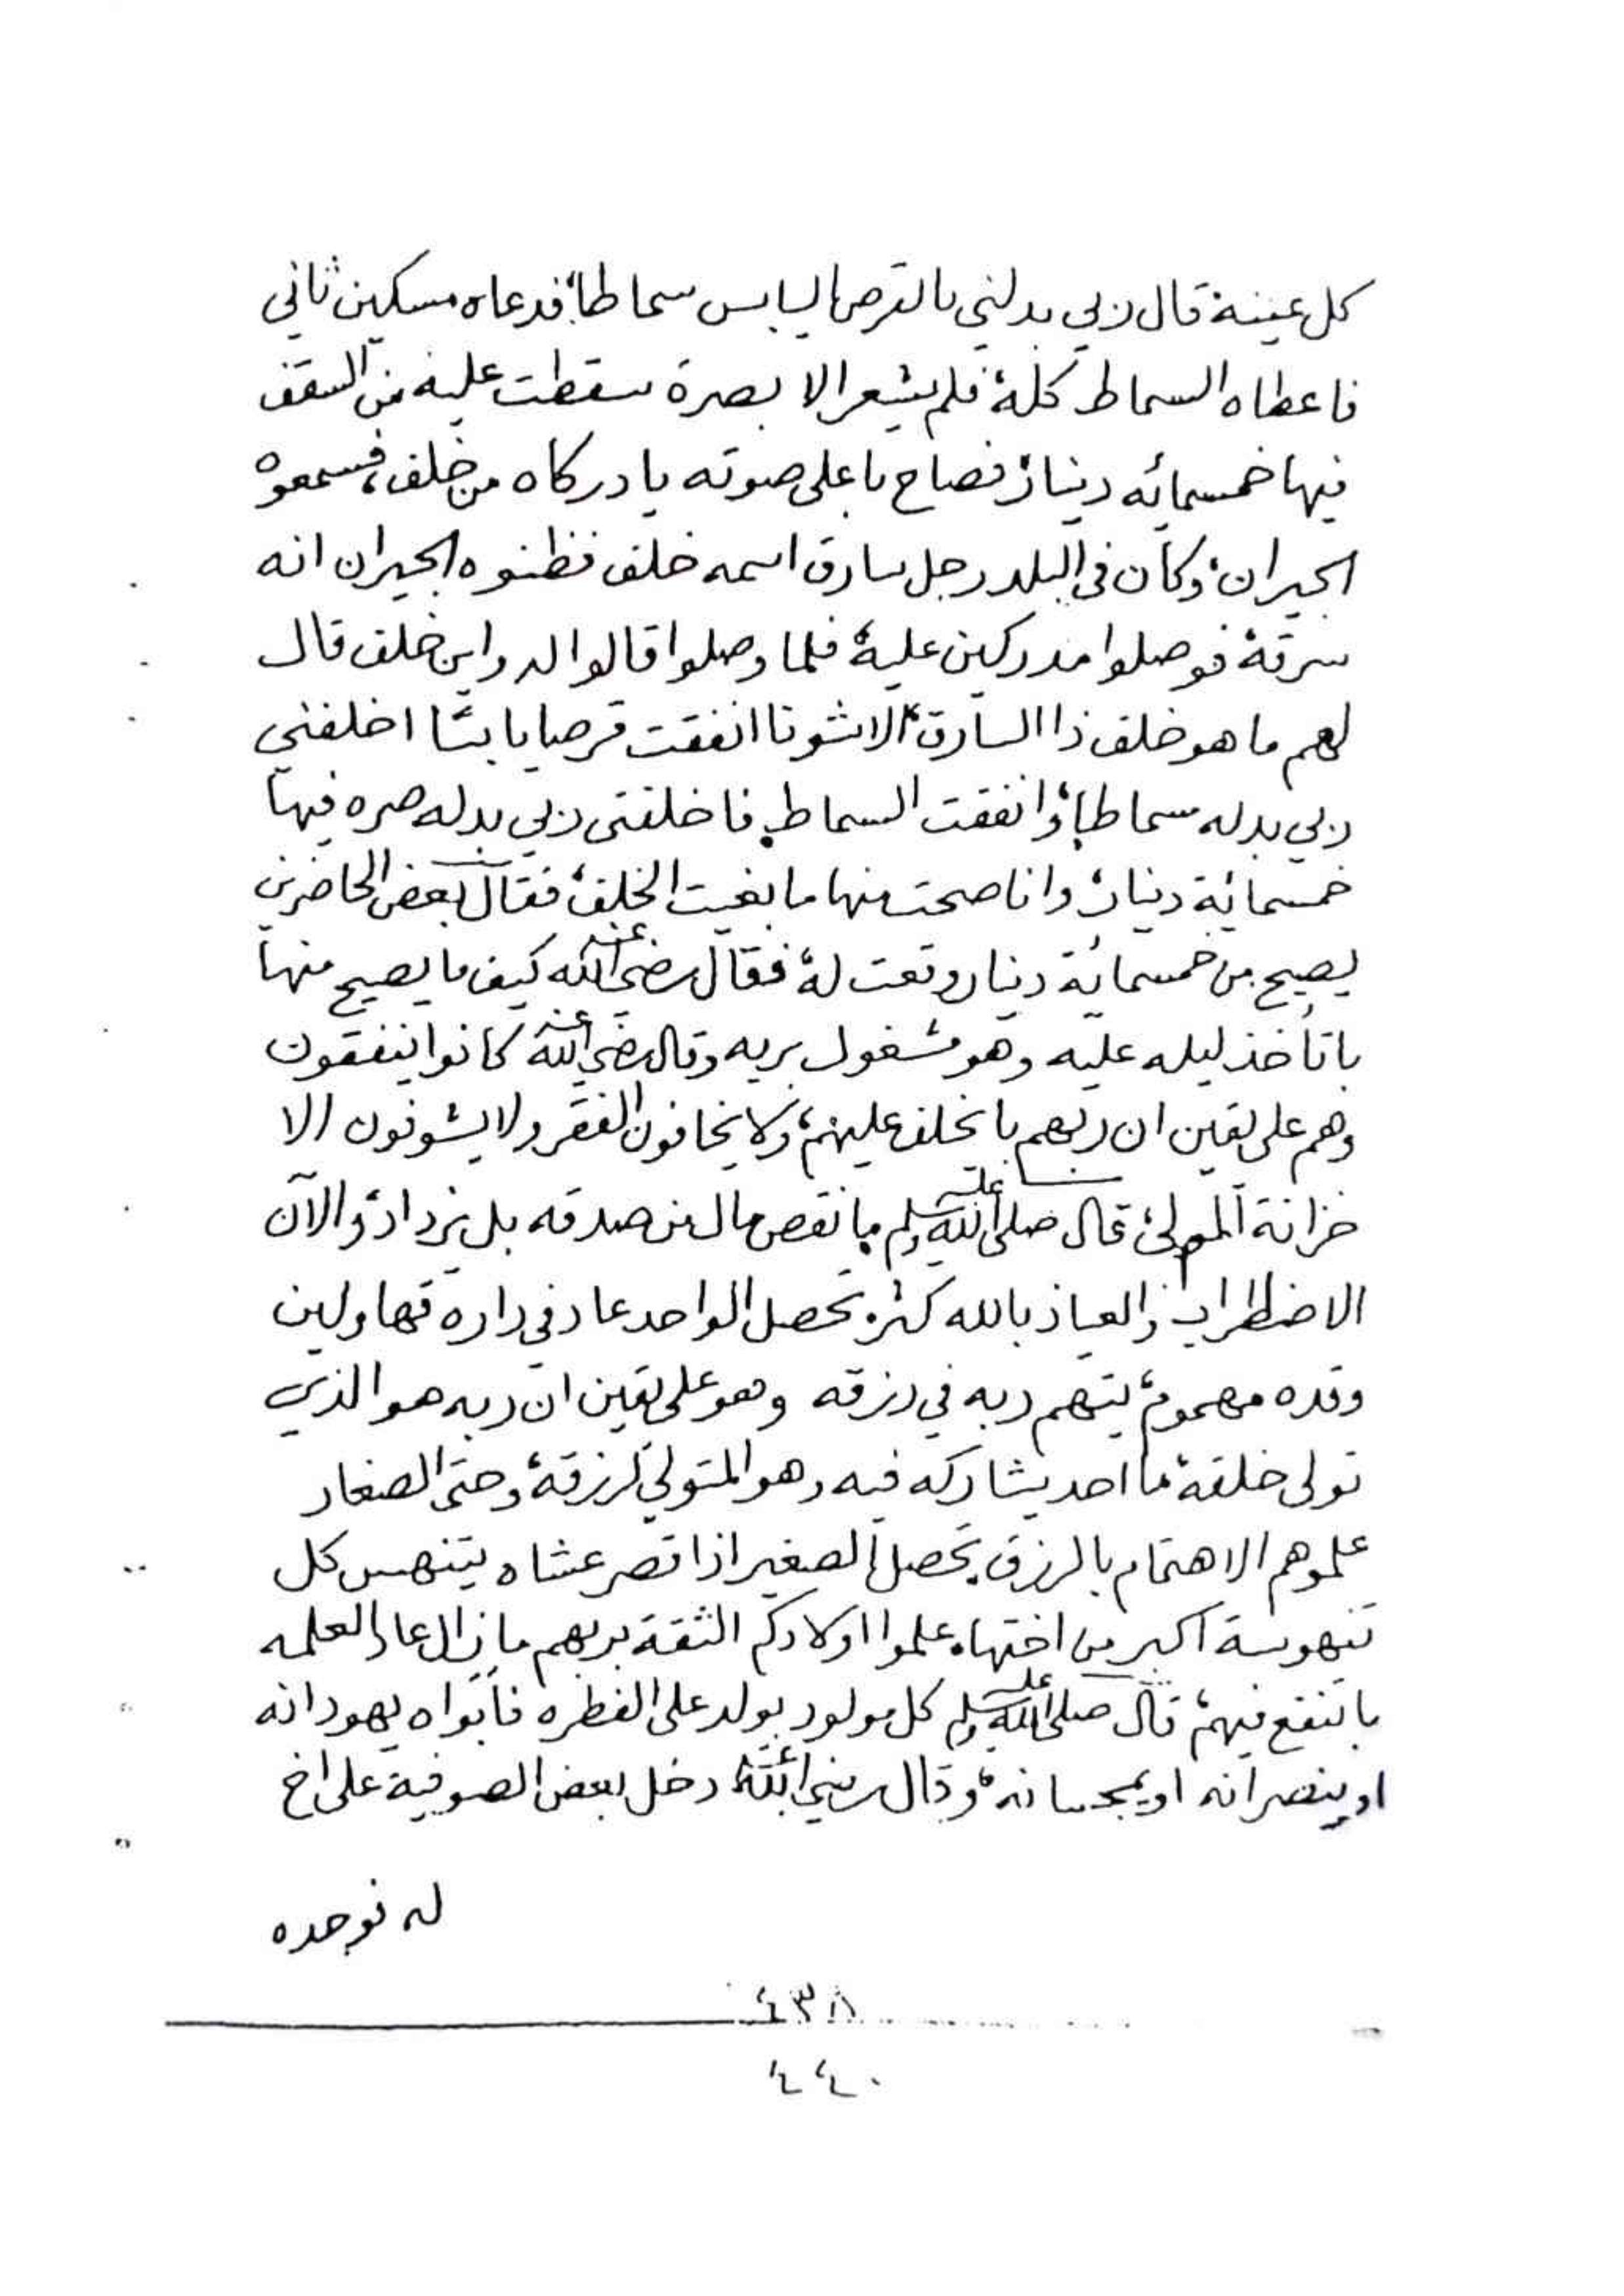 كل عينة قال ربي بدلني بالقرص اليابس سماطا، فدعاه مسكين ثاني
فاعطاه السماط كله، فلم يشعر الا بصرة سقطت عليه من السقف
فيها خمسمائه دينار، فصاح باعلى صوته يا دركاه من خلف، فسمعوه
الجيران، وكان في البلد رجل سارق اسمه خلف فظنوه الجيران انه
سرقه، فوصلوا مدركين عليه، فلما وصلوا قالوا له واين خلف قال
لهم ما هو خلف ذا السارق، الا شونا انفقت قرصا يابسًا اخلفني
ربي بدله سماطا، وانفقت السماط، فاخلفني ربي بدله صره فيها
خمسمائة دينار، وانا صحت منها ما بغيت الخلف، فقال بعض الحاضرين
يصيح من خمسمائة دينار وقعت له، فقال رضي الله عنه كيف ما يصيح منها
باتأخذ ليله عليه وهو مشغول بربه وقال رضي الله عنه كانوا ينفقون
وهم على يقين ان ربهم با يخلف عليهم، ولا يخافون الفقر ولا يشوفون الا
خزانة المولى، قال صلى الله عليه وسلم ما نقص مال من صدقه بل يزداد، والآن
الاضطراب والعياذ بالله كثر، تحصل الواحد عاد في داره قهاولين
وقده مهموم، يتهم ربه في رزقه وهو على يقين ان ربه هو الذي
تولى خلقه، ما احد يشاركه فيه وهو المتولي لرزقه، وحتى الصغار
علموهم الاهتمام بالرزق، تحصل الصغير اذا قصر عشاه يتنهس كل
تنهوسة اكبر من اختها، علموا اولادكم الثقة بربهم ما زال عاد العلمه
باتنفع فيهم، قال صلى الله عليه وسلم كل مولود يولد على الفطره فأبواه يهودانه
او ينصرانه او يمجسانه، وقال رضي الله عنه دخل بعض الصوفية على اخ
له فوجده
٤٣٨
٤٤٠